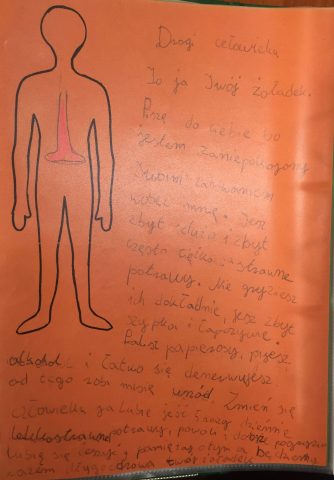 Drogi człowieku
To ja Twój żołądek.
Piszę do ciebie bo
jestem zaniepokojony
Twoim zachowaniem
wobec mnie. Jesz
zbyt dużo i zbyt
często ciężko strawne
potrawy. Nie gryziesz
ich dokładnie, jesz zbyt
szybko i łapczywie.
Palisz papierosy, pijesz
alkohol i łatwo się denerwujesz
od tego robi mi się wrzód Zmień się
człowieku ja lubię jeść 5 razy dziennie
lekkostrawne potrawy, powoli i dobrze pogryzione
lubię się i pamiętaj o tym a będziemy
razem długo zdrowa Twój żołądek